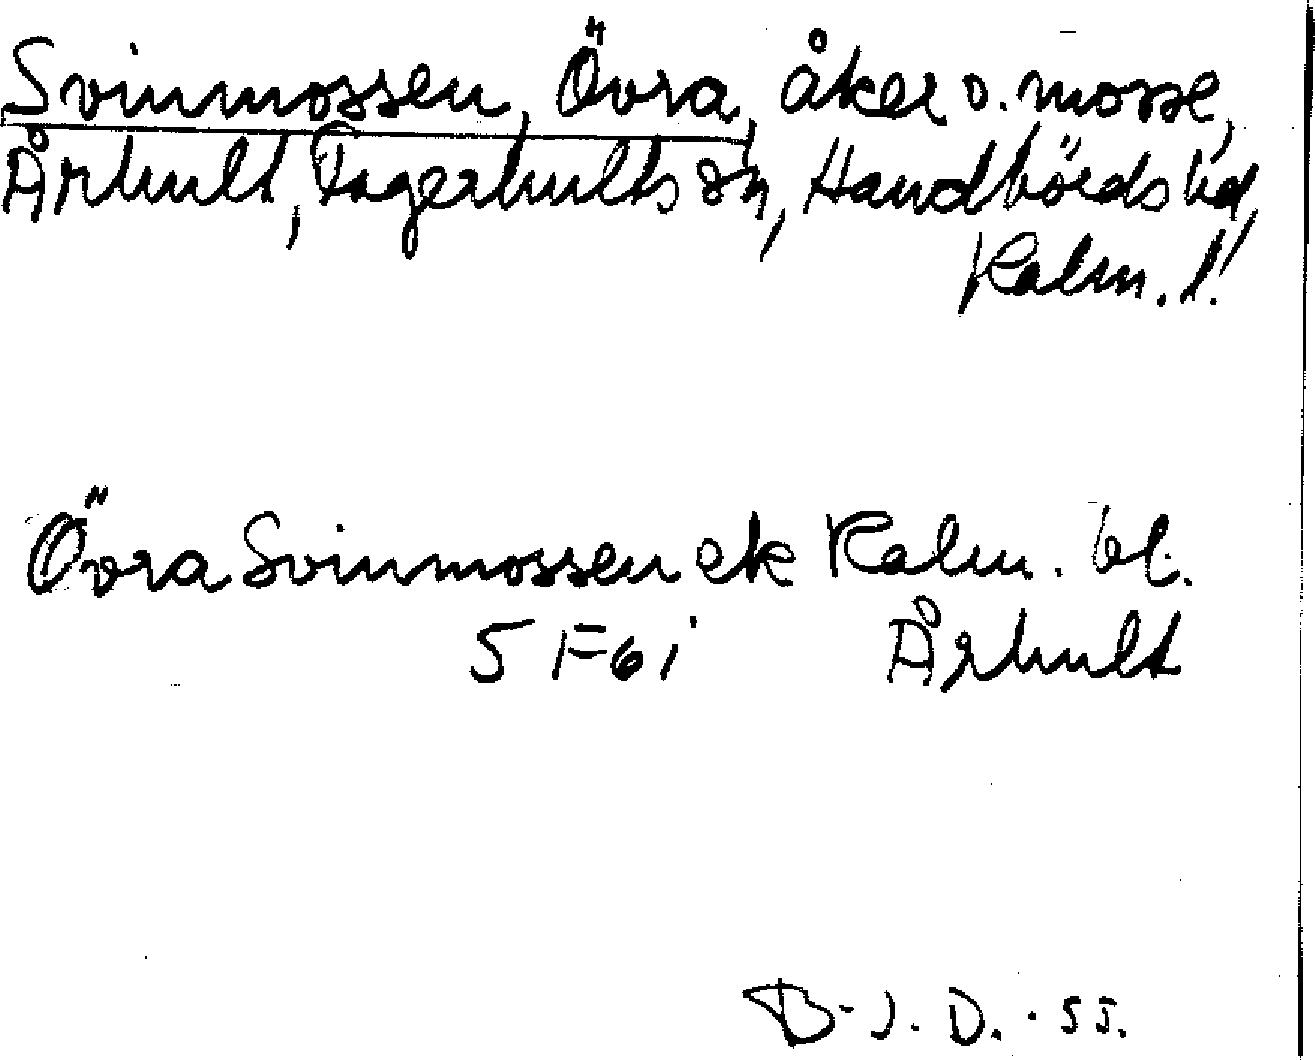 Svinmossen, Övra, åker o. mosse,
Århult, Fagerhults sn, Handbörds hd,
Kalm. l.
Övra Svinmossen ek Kalm. bl.
5 F 6 i Århult
B-J. D. -55.